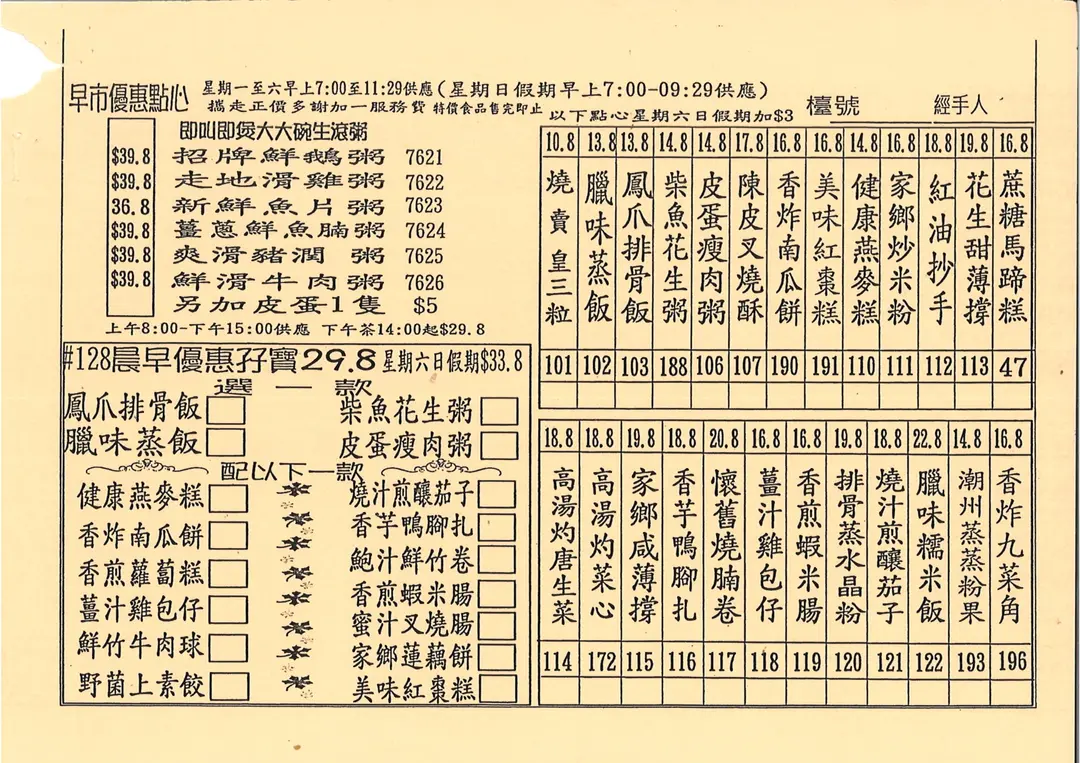 早市優惠點心 星期一至六早上7:00至11:29供應(星期日假期早上7:00-09:29供應)
攜走正價多謝加一服務費 特價食品售完即止 以下點心星期六日假期加$3 檯號 經手人
即叫即煲大大碗生滾粥
$39.8 招牌鮮鵝粥 7621
$39.8 走地滑雞粥 7622
36.8 新鮮魚片粥 7623
$39.8 薑蔥鮮魚腩粥 7624
$39.8 爽滑豬潤 粥 7625
$39.8 鮮滑牛肉粥 7626
另加皮蛋1隻 $5
上午8:00-下午15:00供應 下午茶14:00起$29.8
#128晨早優惠孖寶29.8星期六日假期$33.8
選一款
鳳爪排骨飯 柴魚花生粥
臘味蒸飯 皮蛋瘦肉粥
配以下一款
健康燕麥糕 燒汁煎釀茄子
香炸南瓜餅 香芋鴨腳扎
香煎蘿蔔糕 鮑汁鮮竹卷
薑汁雞包仔 香煎蝦米腸
鮮竹牛肉球 蜜汁叉燒腸
野菌上素餃 家鄉蓮藕餅
美味紅棗糕
10.8 燒賣皇三粒 101
13.8 臘味蒸飯 102
13.8 鳳爪排骨飯 103
14.8 柴魚花生粥 188
14.8 皮蛋瘦肉粥 106
17.8 陳皮叉燒酥 107
16.8 香炸南瓜餅 190
16.8 美味紅棗糕 191
14.8 健康燕麥糕 110
16.8 家鄉炒米粉 111
18.8 紅油抄手 112
19.8 花生甜薄撐 113
16.8 蔗糖馬蹄糕 47
18.8 高湯灼唐生菜 114
18.8 高湯灼菜心 172
19.8 家鄉咸薄撐 115
18.8 香芋鴨腳扎 116
20.8 懷舊燒腩卷 117
16.8 薑汁雞包仔 118
16.8 香煎蝦米腸 119
19.8 排骨蒸水晶粉 120
18.8 燒汁煎釀茄子 121
22.8 臘味糯米飯 122
14.8 潮州蒸蒸粉果 193
16.8 香炸九菜角 196